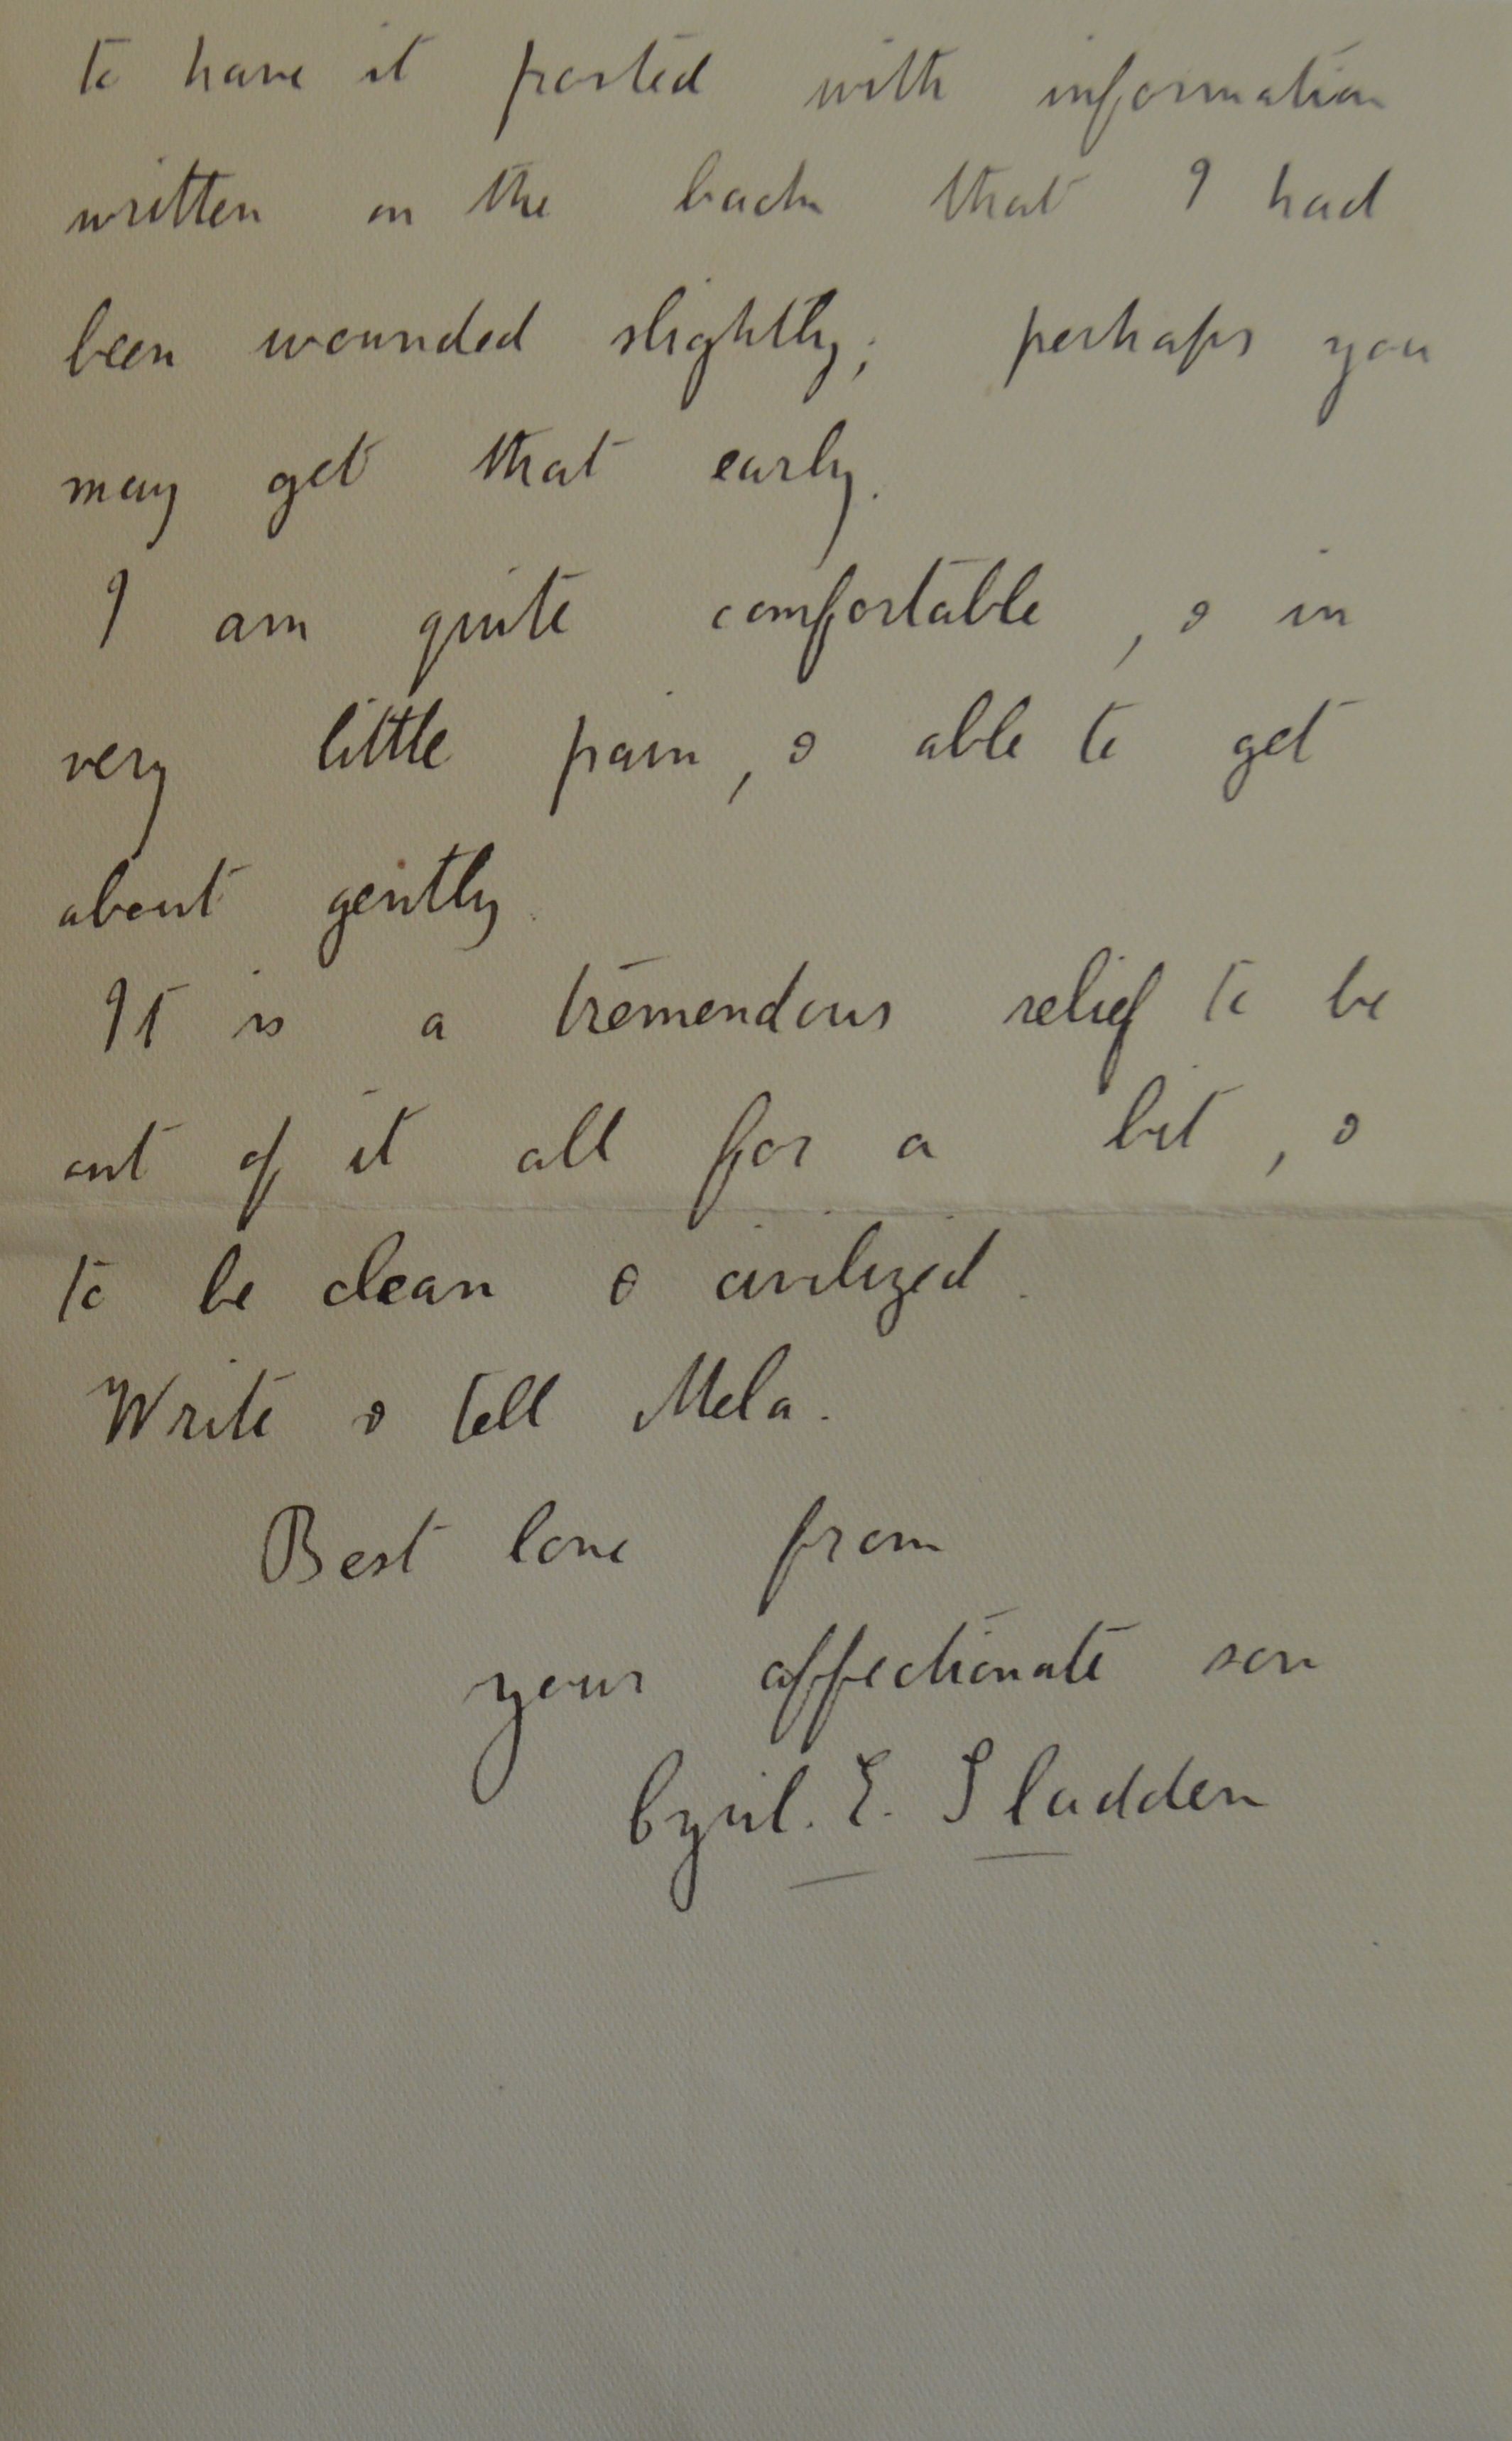 to have it posted with information
written on the back that I had
been wounded slightly; perhaps you
may get that early.
I am quite comfortable, & in
very little pain, & able to get
about gently.
It is a tremendous relief to be
out of it all for a bit, &
to be clean & civilized.
Write & tell Mela.
Best love from
your affectionate son
Cyril. E. Sladden